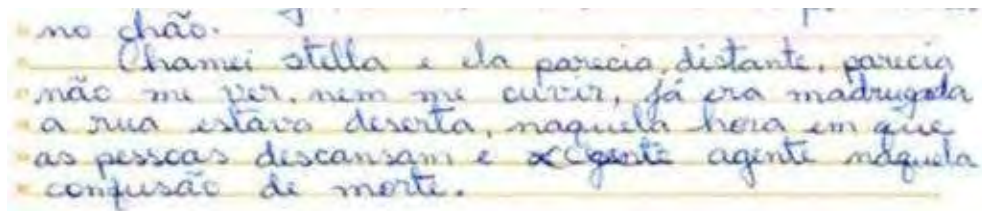 no chão.
Chamei stella e ela parecia, distante, parecia
não me ver, nem me ouvir, já era madrugada
a rua estava deserta, naquela hora em que
as pessoas descansam e agente naquela
confusão de morte.